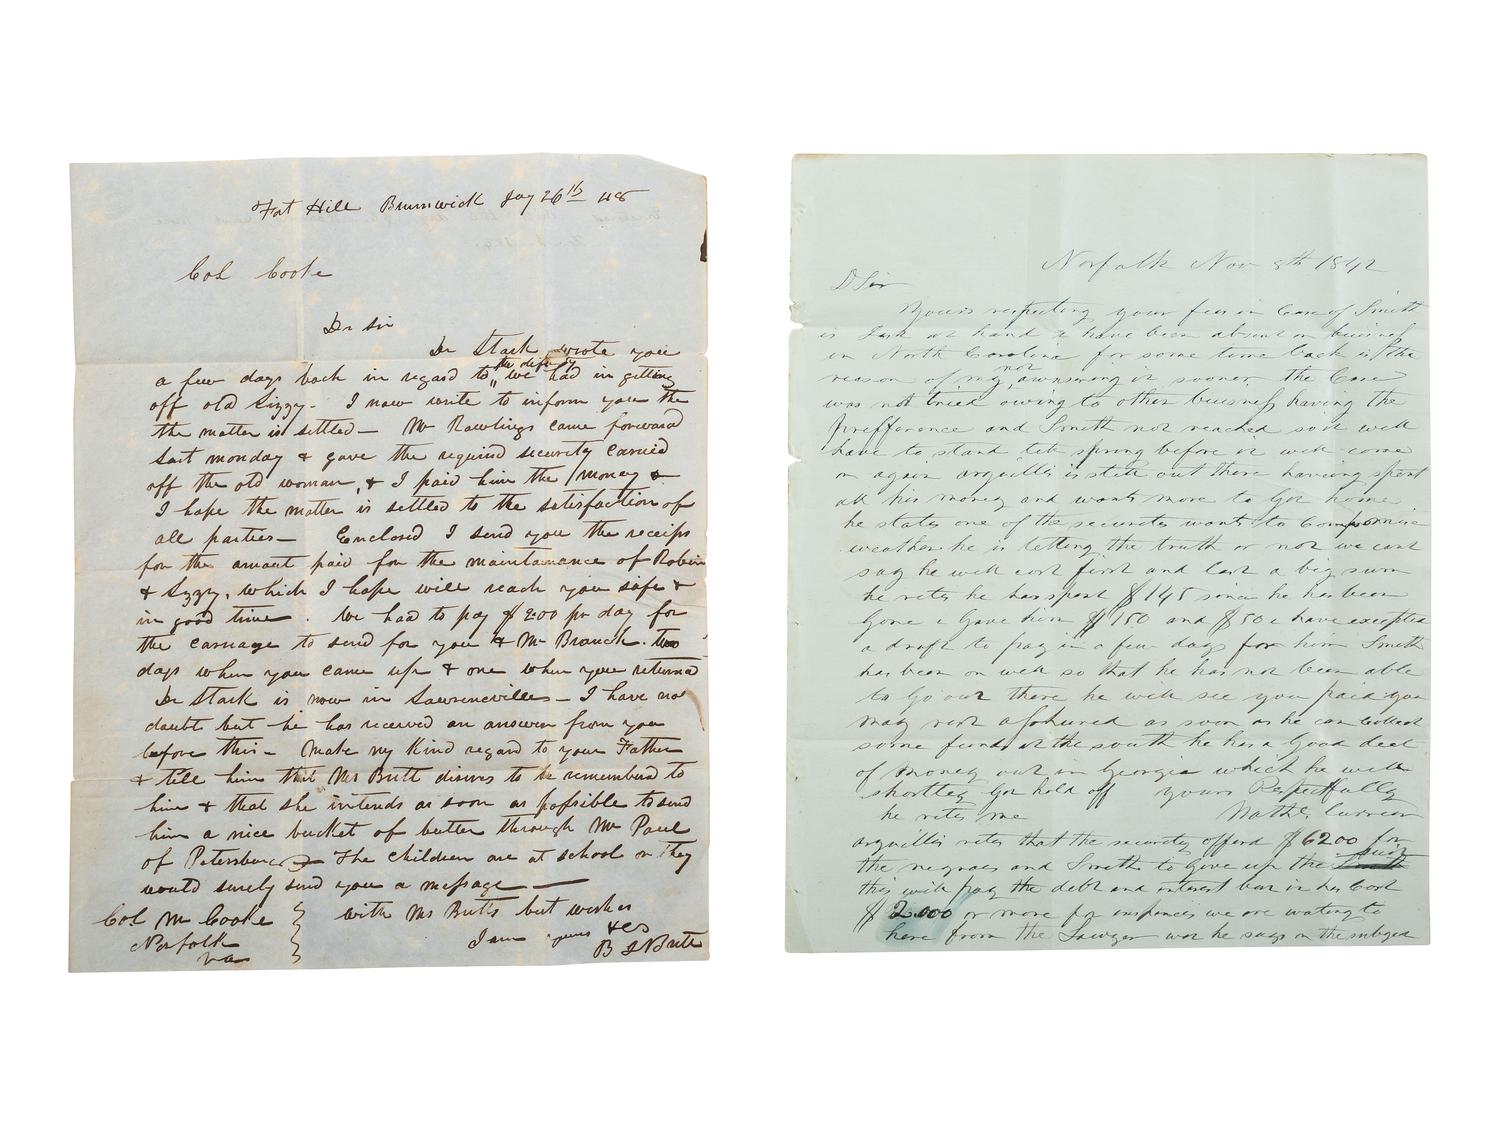 Fort Hill Brunswick Jay 26th 48
Col Cooke
Dr Sir
Dr Stark wrote you
a few days back in regard to the difficulty we had in getting
off old Lizzy - I now write to inform you the
the matter is settled - Mr Rawlings came forward
last monday & gave the required security carried
off the old woman, & I paid him the money &
I hope the matter is settled to the satisfaction of
all parties - Enclosed I send you the receips
for the amount paid for the maintainance of Robin
& Lizzy, which I hope will reach you safe &
in good time. We had to pay $200 pr day for
the carriage to send for you & Mr Branch. two
days when you came up & one when you returned
Dr Stark is now in Lawrenceville - I have no
doubt but he has received an answer from you
before this - Make my Kind regard to your Father
& tell him that Mrs Britt desires to be remembered to
him & that she intends as soon as possible to send
him a nice bucket of butter through Mr Paul
of Petersburg - The children are at school or they
would surely send you a message -
Col M Cooke with Mrs Britts best wishes
Norfolk I am yours &es
Va B I Britt
Norfolk Nov 8th 1842
D Sir
Yours respecting your fees in Case of Smith
is Just at hand I have been absent on buisness
in North Carolina for some time back is the
reason of my not awnsering it sooner the Case
was not tried owing to other buisness having the
prefference and Smith not reached so it will
have to stand till spring before it will come
on again arguillis is still out there having spent
all his money and wants more to Got home
he states one of the securites wants to Compromise
weather he is telling the truth or not we cant
say he will cost first and last a big sum
he rites he has spent $145 since he has been
Gone I Gave him $150 and $50 I have excepted
a draft to pay in a few days for him Smith
has been on well so that he has not been able
to Go out there he will see you paid you
may rest ashured as soon as he can Collect
some funds at the south he has a Good deel
of money out in Georgia which he will
shortley Got hold off yours Respectfully
he rites me Nathl
arguillis rites that the security offerd $6200 for
the negroes and Smith to Give up the suit
this will pay the debt and interest but in his Cost
$2.000 or more for exspences we are waiting to
here from the Lawyer wat he says on the subject